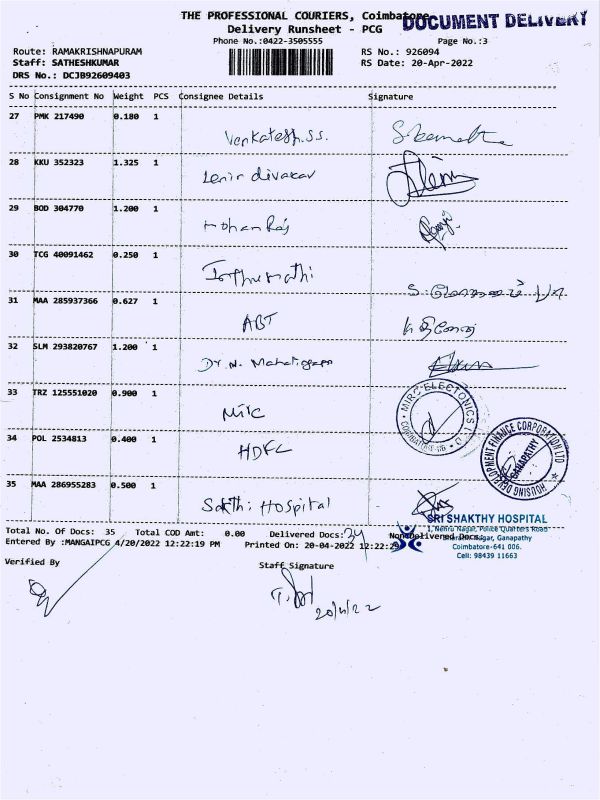 THE PROFESSIONAL COURIERS, Coimbatore
DOCUMENT DELIVERY
Delivery Runsheet - PCG
Phone No.:0422-3505555
Page No.:3
Route: RAMAKRISHNAPURAM
RS No.: 926094
Staff: SATHESHKUMAR
RS Date: 20-Apr-2022
DRS No.: DCJB92609403
S No Consignment No Weight PCS Consignee Details Signature
27 PMK 217490 0.180 1
Venkatesh.S.S.
28 KKU 352323 1.325 1
Lenin divakar
29 BOD 304770 1.200 1
Mohan Raj
30 TCG 40091462 0.250 1
31 MAA 285937366 0.627 1
ABT
32 SLM 293820767 1.200 1
Dr. N. Mahalingam
33 TRZ 125551020 0.900 1
34 POL 2534813 0.400 1
HDFC
HOUSING DEVELOPMENT FINANCE CORPORATION LTD
GANAPATHY
35 MAA 286955283 0.500 1
Sakthi Hospital
SRI SHAKTHY HOSPITAL
1, Nehru Nagar, Police Quarters Road
Nagar, Ganapathy
Coimbatore-641 006.
Cell: 98439 11663
Total No. Of Docs: 35 Total COD Amt: 0.00 Delivered Docs: 34 NonDelivered Docs:
Entered By :MANGAIPCG 4/20/2022 12:22:19 PM Printed On: 20-04-2022 12:22:29
Verified By
Staff Signature
20/4/22